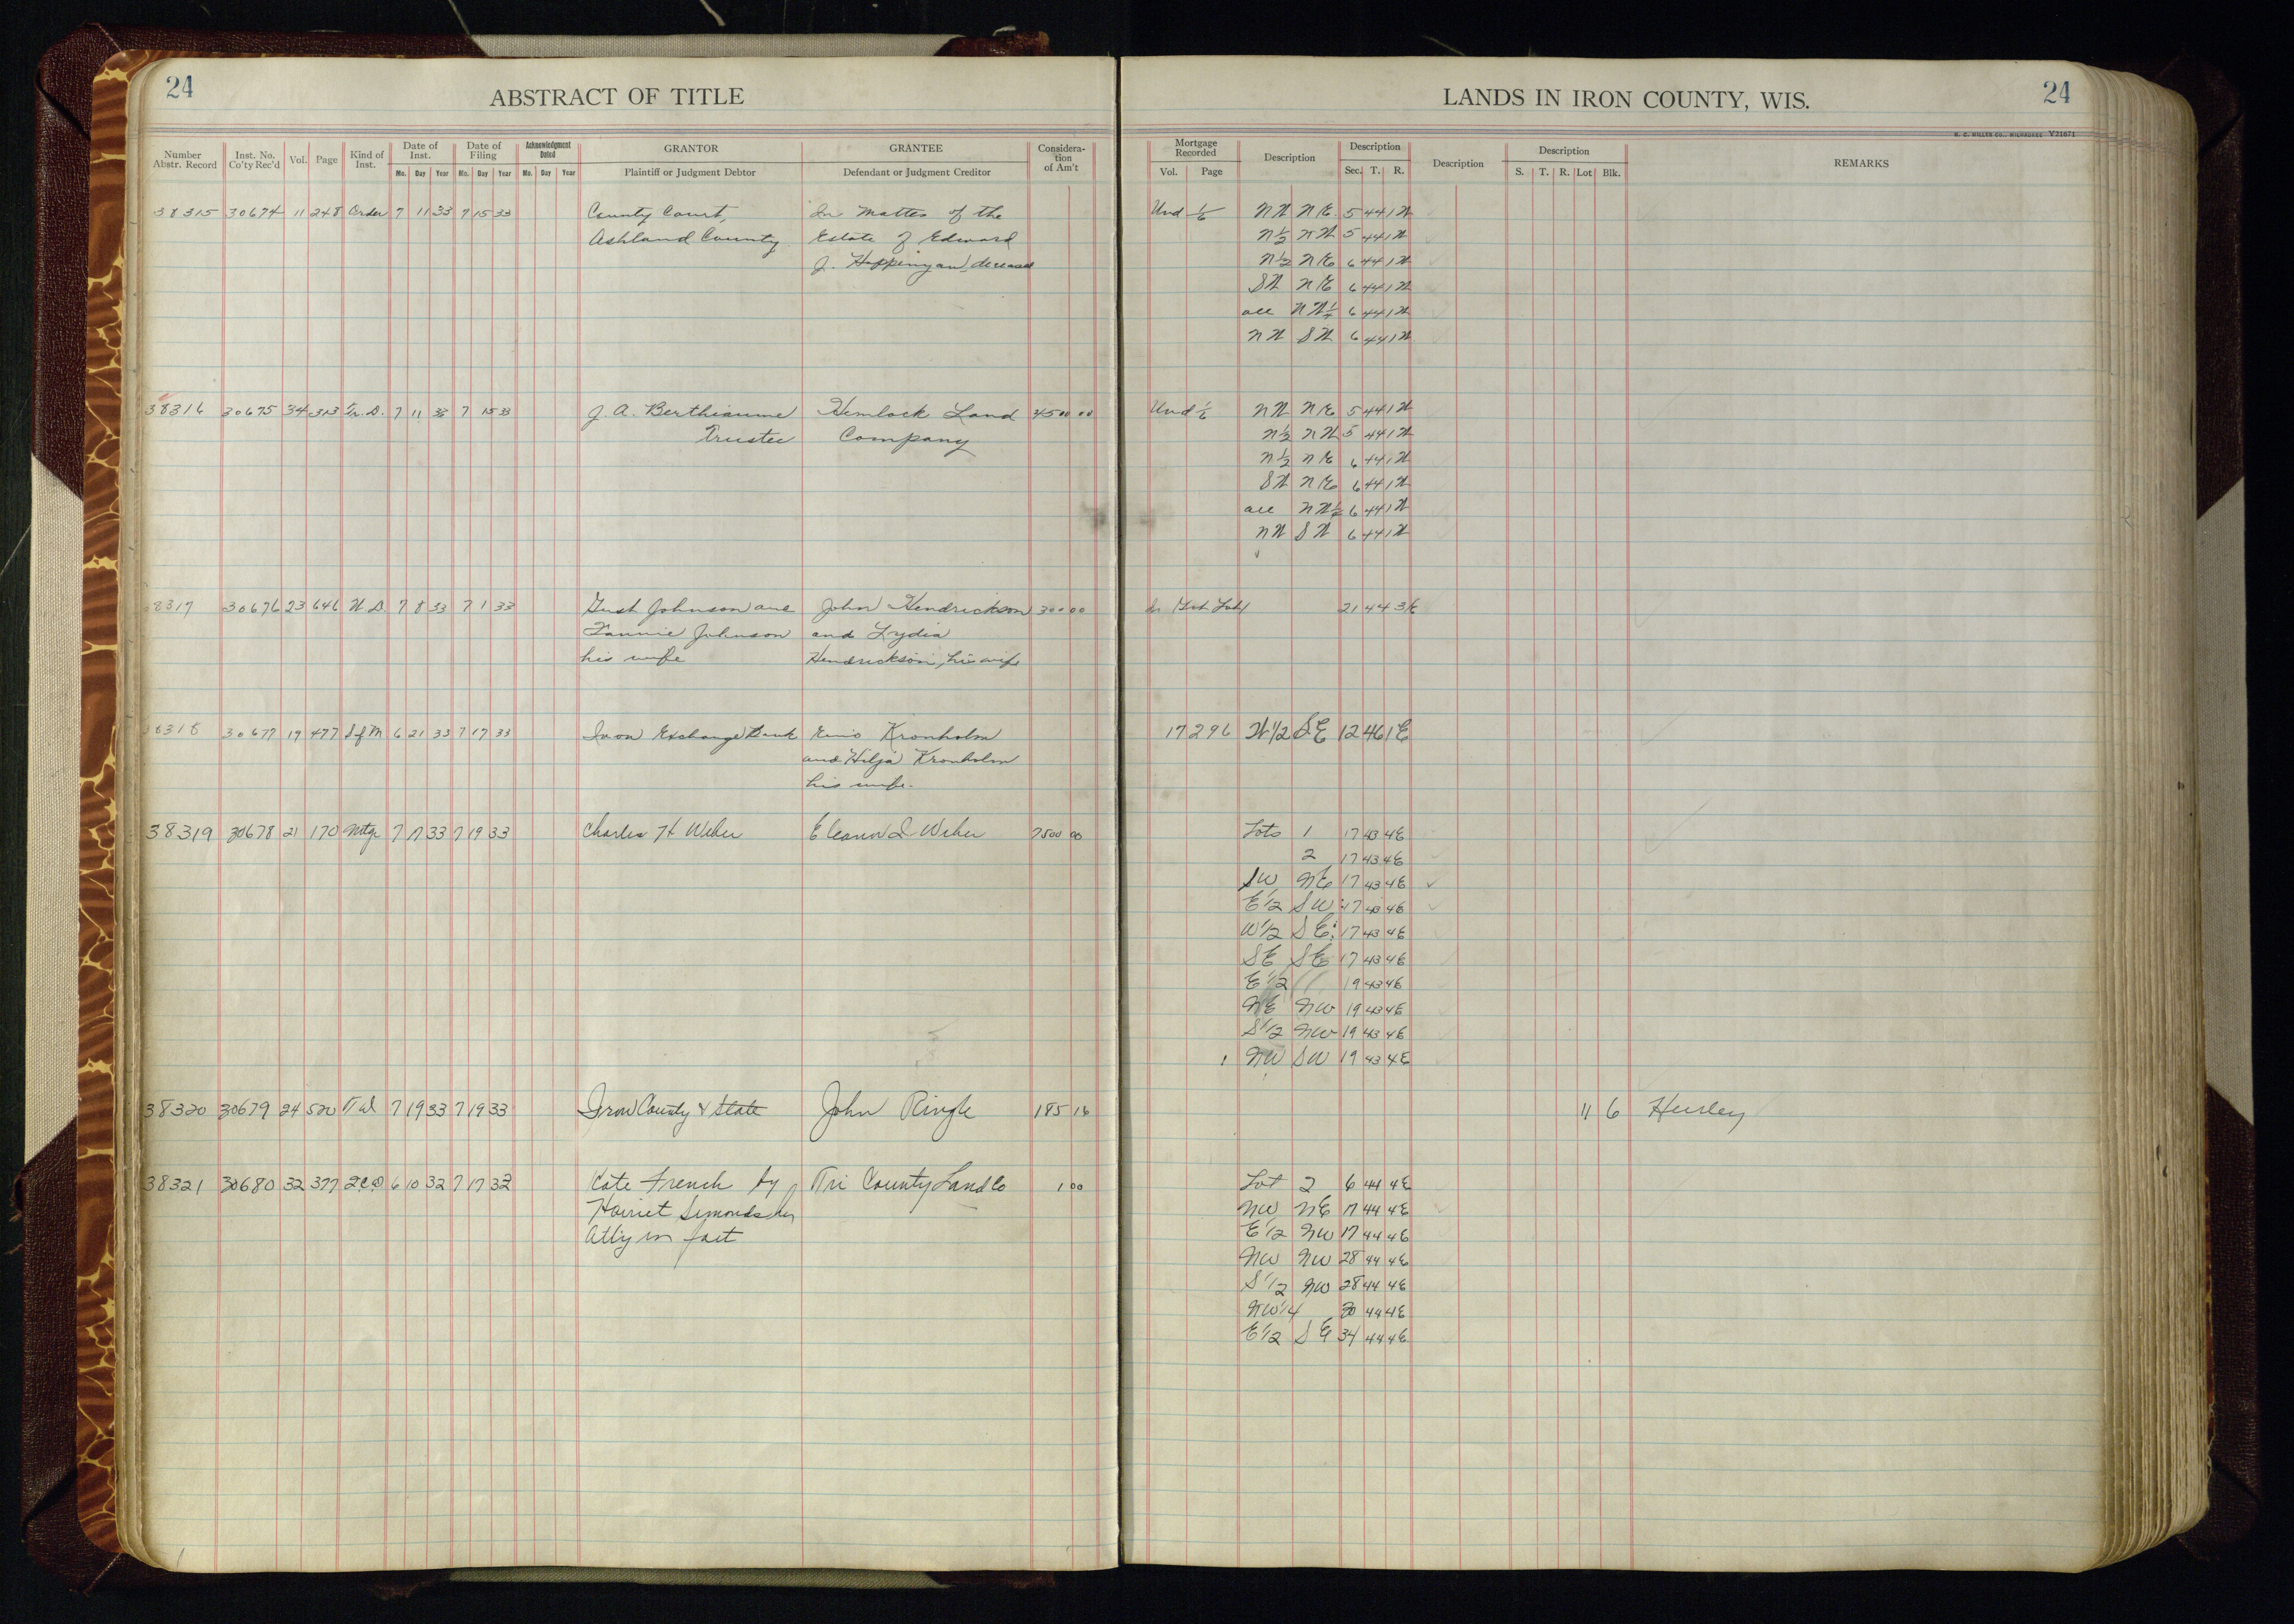 24
ABSTRACT OF TITLE
LANDS IN IRON COUNTY, WIS.
24
H. C. MILLER CO., MILWAUKEE Y21671
Number Abstr. Record Inst. No. Co'ty Rec'd Vol. Page Kind of Inst. Date of Inst. Mo. Day Year Date of Filing Mo. Day Year Acknowledgment Dated Mo. Day Year GRANTOR Plaintiff or Judgment Debtor GRANTEE Defendant or Judgment Creditor Consideration of Am't
Mortgage Recorded Vol. Page Description Description Sec. T. R. Description Description S. T. R. Lot Blk. REMARKS
38315 30674 11 248 Order 7 11 33 7 15 33 County Court, In Matter of the Und 1/6 NW NE 5 44 1W
Ashland County Estate of Edward N1/2 NW 5 44 1W
J. deceased N1/2 NE 6 44 1W
SW NE 6 44 1W
all NW1/4 6 44 1W
NW SW 6 44 1W
38316 30675 34 313 Tr. D. 7 11 33 7 15 33 J. A. Berthiaume Hemlock Land 4500 00 Und 1/6 NW NE 5 44 1W
Trustee Company N1/2 NW 5 44 1W
N1/2 NE 6 44 1W
SW NE 6 44 1W
all NW1/4 6 44 1W
NW SW 6 44 1W
38317 30676 23 646 W. D. 7 8 33 7 1 33 Gust Johnson and John Hendrickson 300 00 21 44 3E
Fannie Johnson and Lydia
his wife Hendrickson, his wife
38318 30677 19 477 S of M 6 21 33 7 17 33 Iron Exchange Bank Eino Kronholm 17 296 W1/2 SE 12 46 1E
and Hilja Kronholm
his wife.
38319 30678 21 170 Mtge 7 17 33 7 19 33 Charles H Weber Eleanor I Weber 7500 00 Lots 1 17 43 4E
2 17 43 4E
SW NE 17 43 4E
E1/2 SW 17 43 4E
W1/2 SE 17 43 4E
SE SE 17 43 4E
E1/2 19 43 4E
NE NW 19 43 4E
S1/2 NW 19 43 4E
NW SW 19 43 4E
38320 30679 24 520 T d 7 19 33 7 19 33 Iron County & State John Ringle 185 16 11 6 Hurley
38321 30680 32 377 Q.C.D. 6 10 32 7 17 33 Kate French by Tri County Land Co 1 00 Lot 2 6 44 4E
Harriet Simonds her NW NE 17 44 4E
Atty in fact E1/2 NW 17 44 4E
NW NW 28 44 4E
S1/2 NW 28 44 4E
NW1/4 30 44 4E
E1/2 SE 34 44 4E